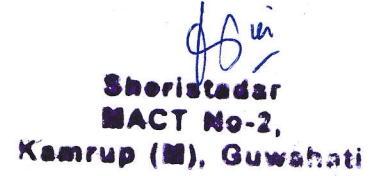 Sheristadar
MACT No-2,
Kamrup (M), Guwahati